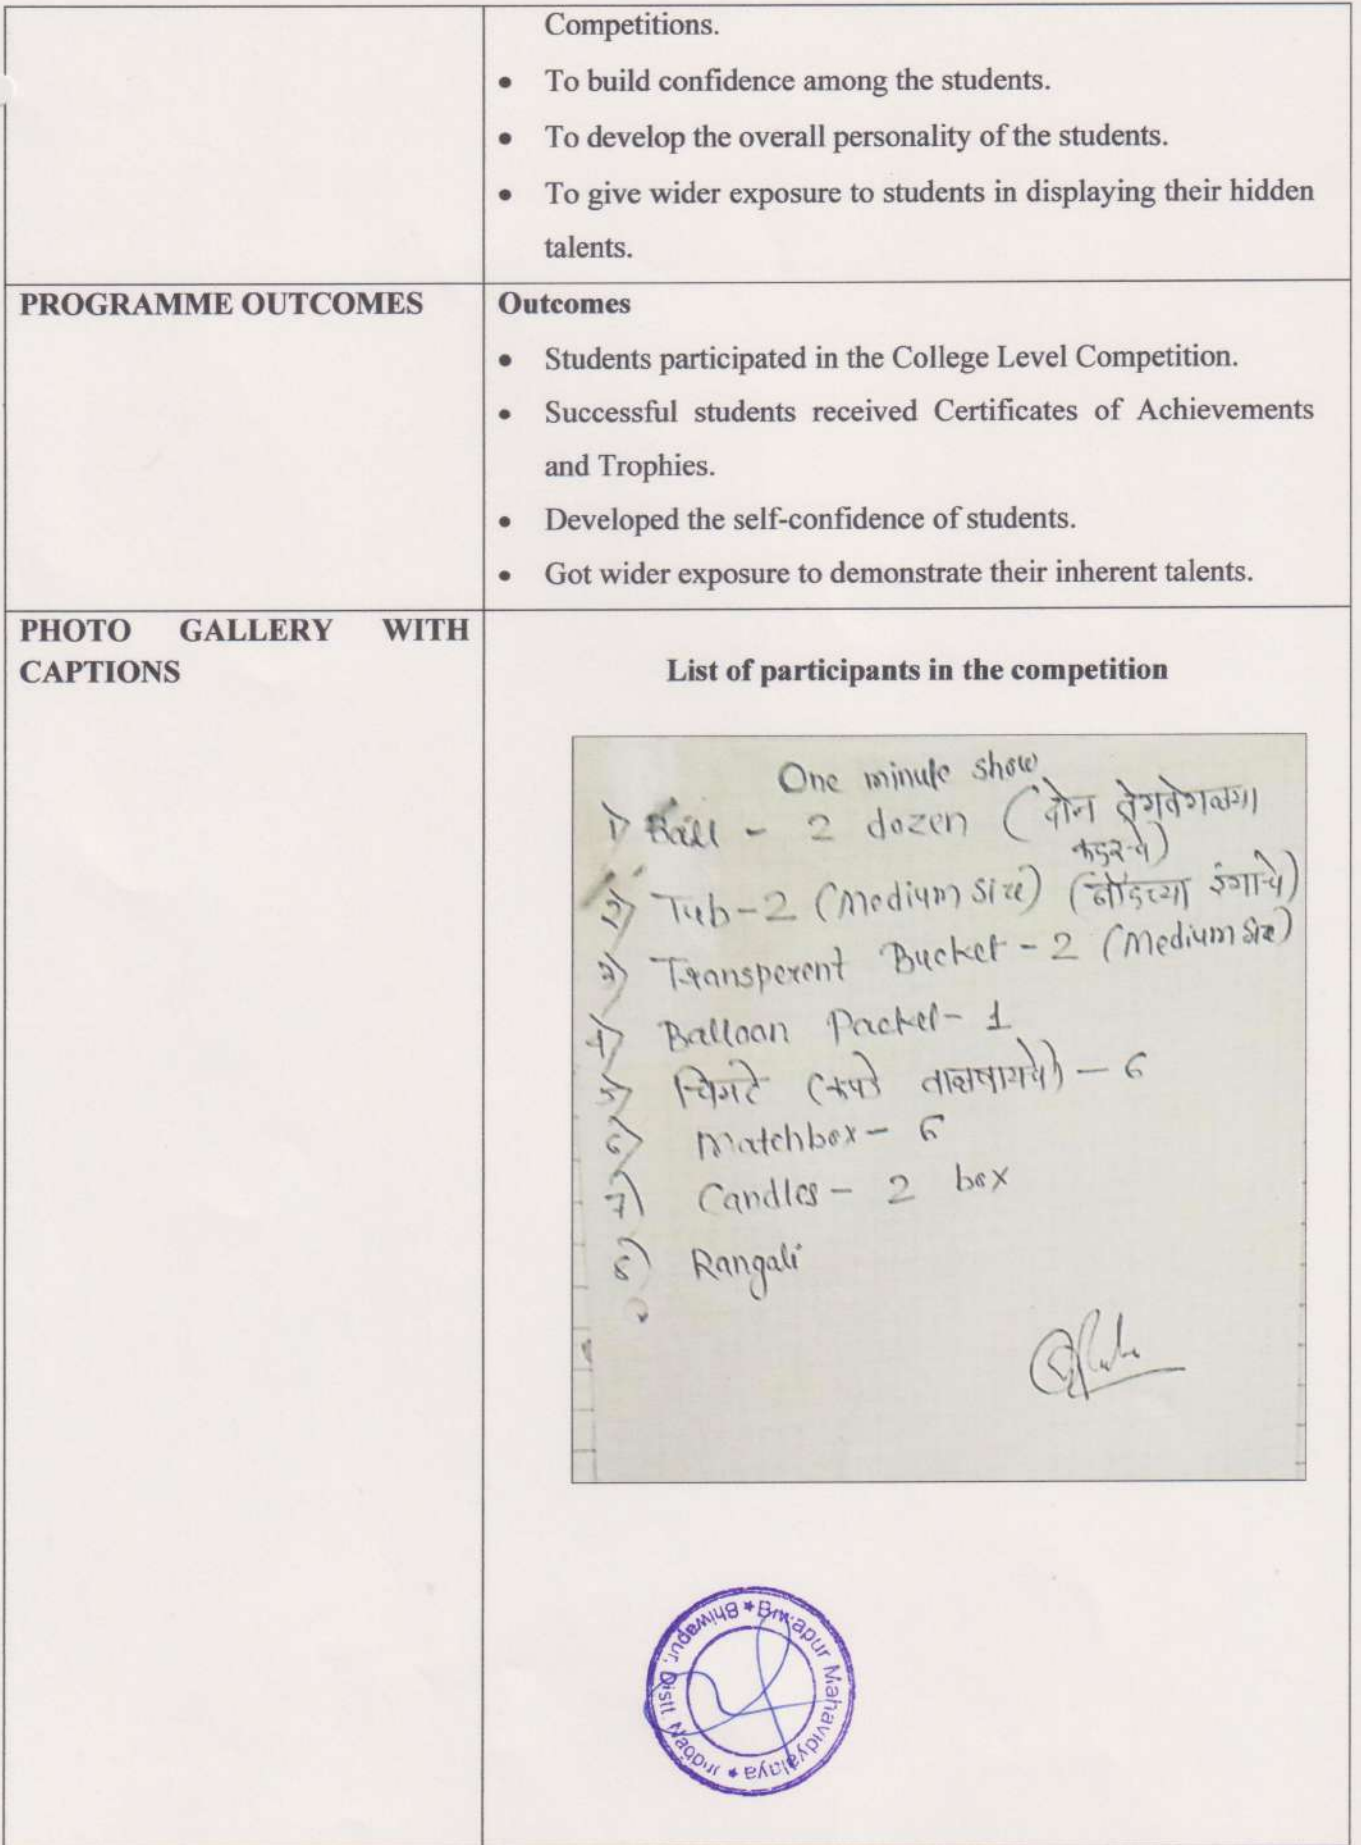 Competitions.
• To build confidence among the students.
• To develop the overall personality of the students.
• To give wider exposure to students in displaying their hidden
talents.
PROGRAMME OUTCOMES
Outcomes
• Students participated in the College Level Competition.
• Successful students received Certificates of Achievements
and Trophies.
• Developed the self-confidence of students.
• Got wider exposure to demonstrate their inherent talents.
PHOTO GALLERY WITH
CAPTIONS
List of participants in the competition
One minute show
1) Ball - 2 dozen (दोन वेगवेगळ्या
कलरचे)
2) Tub-2 (Medium Size)
3) Transperent Bucket - 2 (Medium Size)
4) Balloan Packet- 1
5) चिमटे (कपडे) - 6
6) Matchbox - 6
7) Candles - 2 box
8) Rangali
Bhiwapur Mahavidyalaya * Bhiwapur, Distt Nagpur *